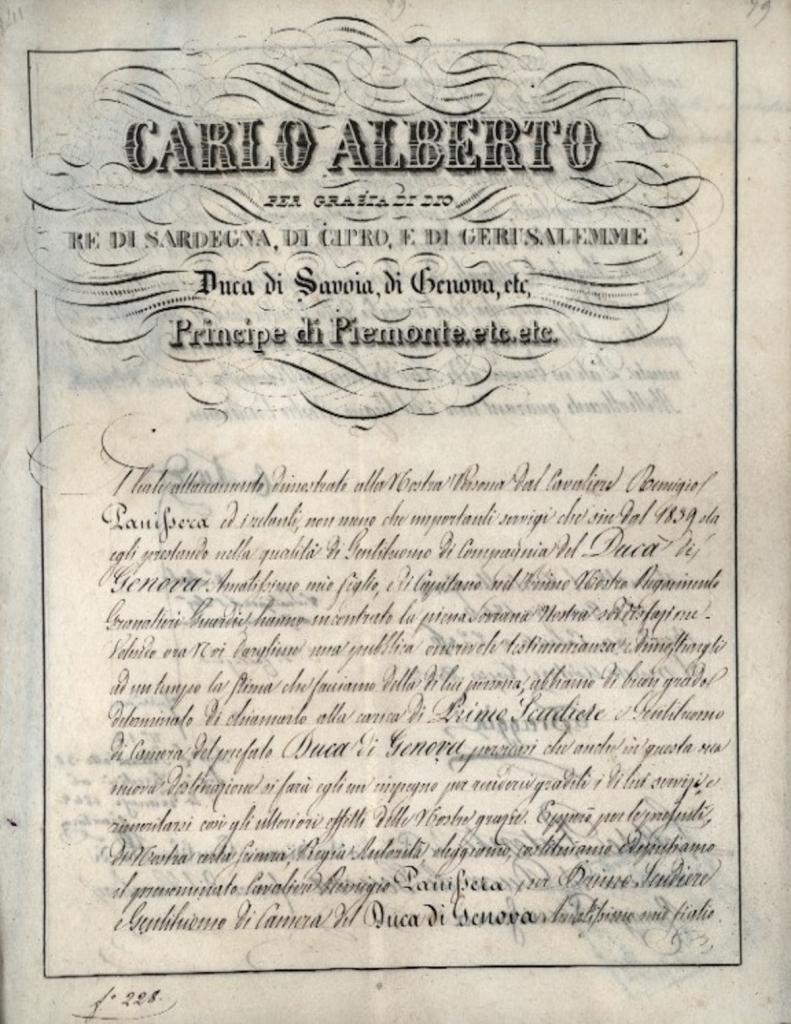 79
CARLO ALBERTO
PER GRAZIA DI DIO
RE DI SARDEGNA, DI CIPRO, E DI GERUSALEMME
Duca di Savoia, di Genova, etc,
Principe di Piemonte. etc. etc.
Il leale attaccamento dimostrato alla Nostra Persona dal Cavaliere Remigio
Panissera ed i zelanti, non meno che importanti servigi che sin dal 1839 sta
egli prestando nella qualità di Gentiluomo di Compagnia del Duca di
Genova Amatissimo mio figlio, e di Capitano nel Primo Nostro Reggimento
Granatieri Guardie, hanno incontrato la piena Sovrana Nostra soddisfazione.
Volendo ora Noi dargliene una pubblica onorevole testimonianza e dimostrargli
ad un tempo la stima che facciamo della di lui persona, abbiamo di buon grado
determinato di chiamarlo alla carica di Primo Scudiere e Gentiluomo
di Camera del prefato Duca di Genova, persuasi che anche in questa sua
nuova destinazione si farà egli un impegno per renderci graditi i di lui servizi, e
rimeritarsi così gli ulteriori effetti delle Nostre grazie. Epperò per le presenti,
di Nostra certa scienza, Regia Autorità, eleggiamo, costituiamo e deputiamo
il prenominato Cavaliere Remigio Panissera per Primo Scudiere
e Gentiluomo di Camera del Duca di Genova Amatissimo mio figlio
f.° 228.